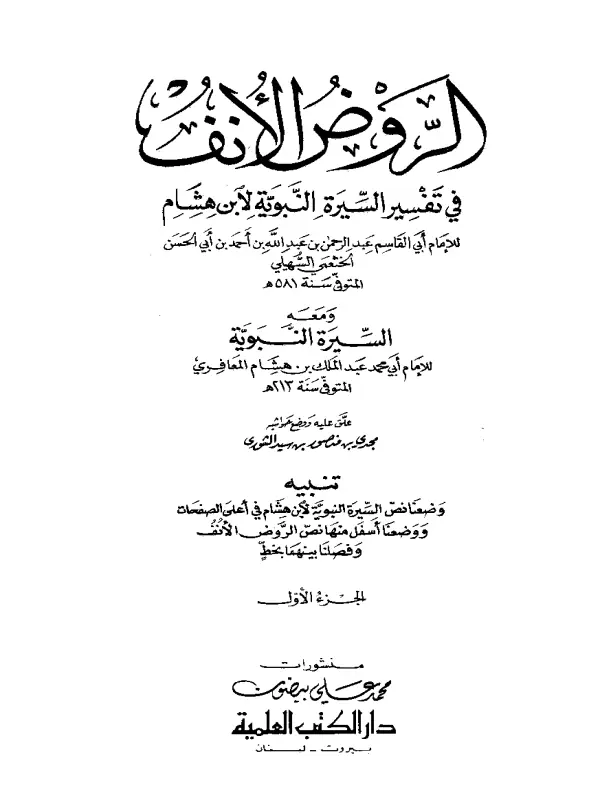 الرَّوْضُ الأُنُفُ
في تَفْسِير السِّيرَة النَّبَويَّة لابْن هشَام
للإمَام أبي القاسِم عَبد الرحمن بن عَبد الله بن أحمَد بن أبي الحَسَن
الخَثعَمي السُّهَيلي
المتوفّى سَنة ٥٨١هـ
وَمَعَه
السِّيرَة النَّبَويَّة
للإمَام أبي محمد عَبد الملك بن هشَام المعَافِري
المتوفّى سَنَة ٢١٣هـ
علّق عليه ووضع حواشيه
مجدي بن منصور بن سيد الشورى
تنبيه
وَضعنَا نصّ السّيرَة النبويَّة لابن هشام في أعلى الصفحات
وَوَضعنَا أسفل منهَا نصّ الرَّوض الأُنُفُ
وَفصَلنَا بينهمَا بخطٍّ
الجزء الأوّل
منشورات
محمد علي بيضون
دار الكتب العلمية
بيروت - لبنان